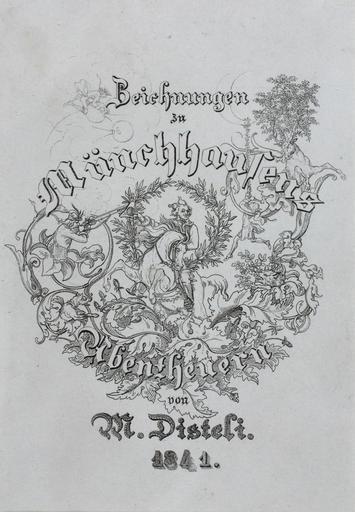 Zeichnungen
zu
Münchhausens
Abentheuern
von
M. Disteli.
1841.